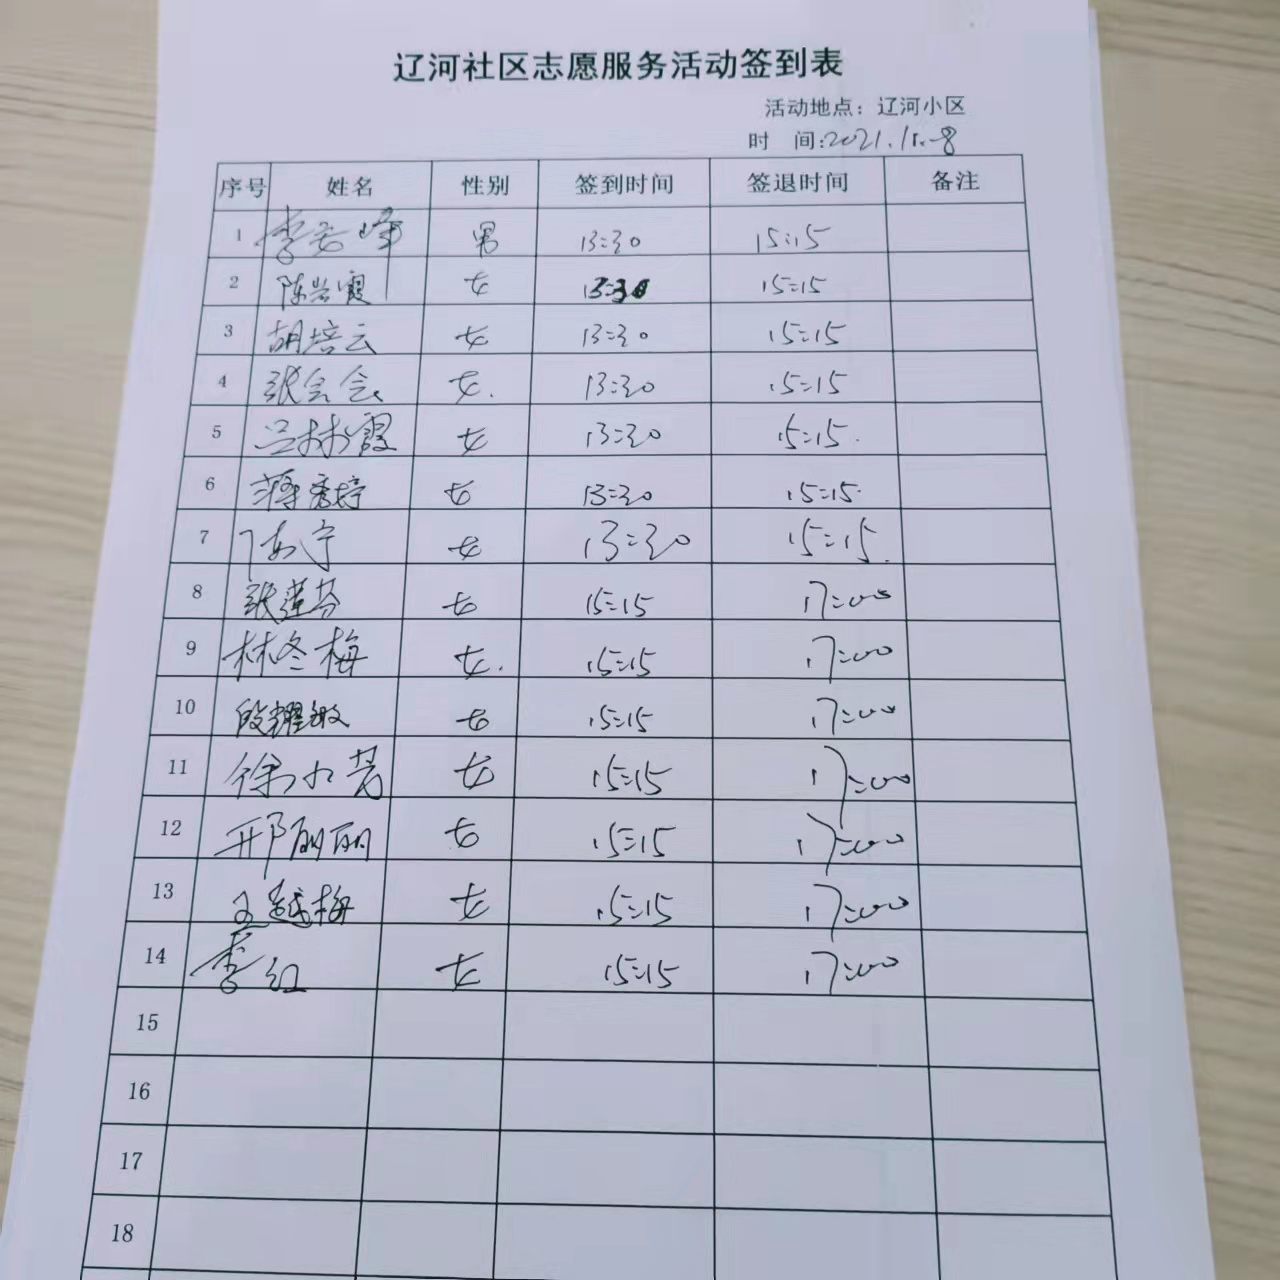 辽河社区志愿服务活动签到表
活动地点：辽河小区
时 间:2021.11.8
序号 姓名 性别 签到时间 签退时间 备注
1 李 峰 男 13:30 15:15
2 陈岩霞 女 13:30 15:15
3 胡培云 女 13:30 15:15
4 张会会 女. 13:30 15:15
5 兰林霞 女 13:30 15:15.
6 蒋秀婷 女 13:30 15:15.
7 宁 女 13:30 15:15.
8 张莲芬 女 15:15 17:00
9 林冬梅 女. 15:15 17:00
10 段耀敏 女 15:15 17:00
11 徐小芳 女 15:15 17:00
12 邢丽丽 女 15:15 17:00
13 王越梅 女 15:15 17:00
14 李红 女 15:15 17:00
15
16
17
18